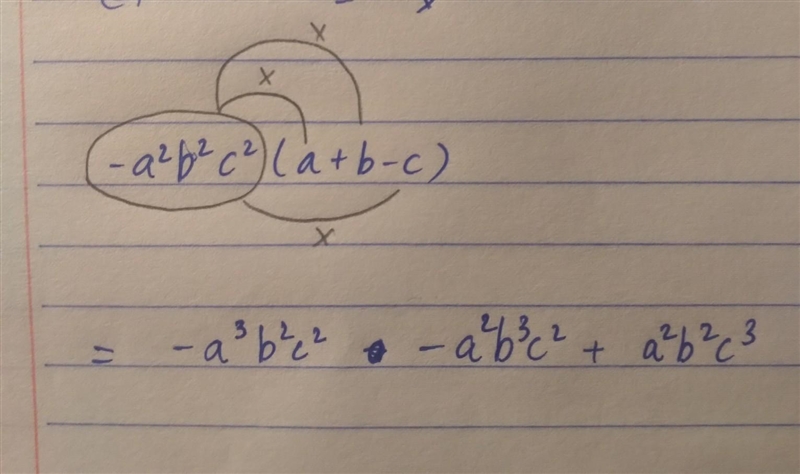 x
x
-a²b²c² (a+b-c)
x
= -a³b²c² - a²b³c² + a²b²c³